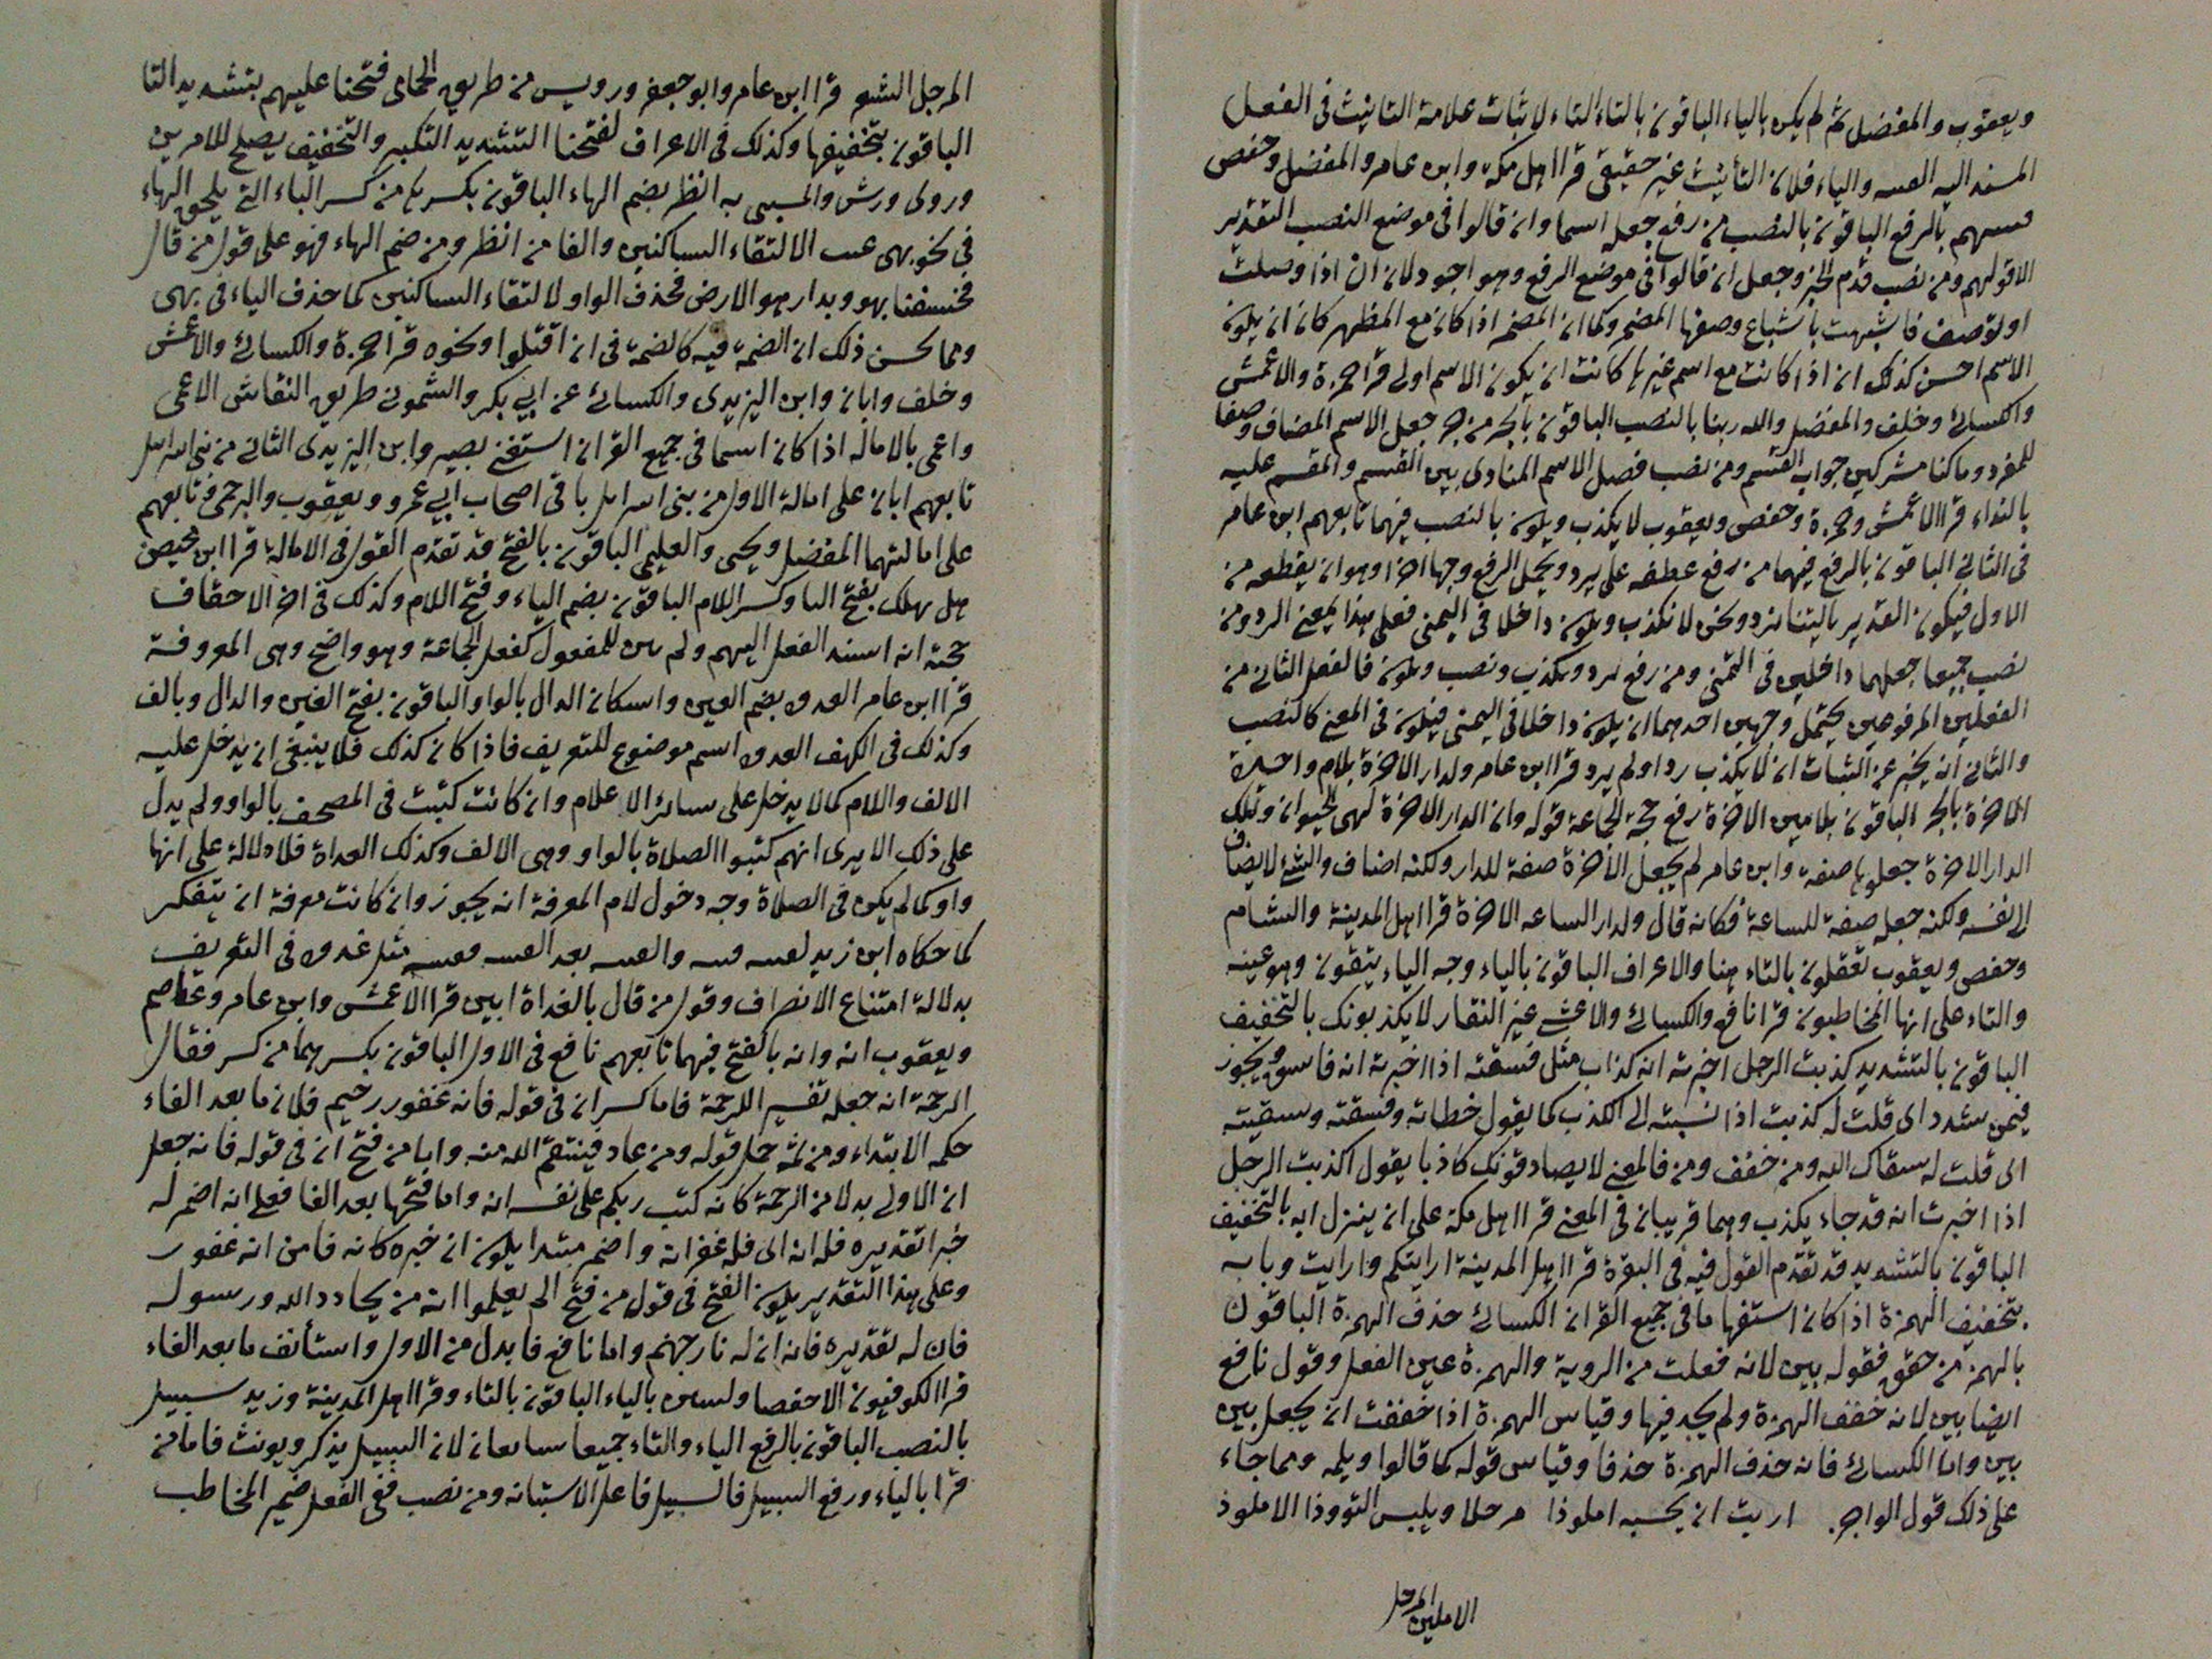 ويعقوب والمفضل ثم لم يكن بالياء الباقون بالتاء التاء لاثبات علامة التانيث فى الفعل
المسند اليه الفتنه والياء فلان التأنيث غير حقيقى قرا اهل مكة وابن عامر والمفضل وحفص
فتنتهم بالرفع الباقون بالنصب من رفع جعله اسما وان قالوا فى موضع النصب التقدير
الا قولهم ومن نصب قدم الخبر وجعل ان قالوا فى موضع الرفع وهو اجود لان ان اذا وصلت
او لم توصف فاشبهت بأشباع وصفها المضمر وكما ان المضمر اذا كان مع المظهر كان ان يكون
الاسم احسن كذلك ان اذا كانت مع اسم غيرها كانت ان يكون الاسم اولى قرا حمزة والاعمش
والكسائى وخلف والمفضل والله ربنا بالنصب الباقون بالجر من جر جعل الاسم المضاف وصفا
للمفرد وما كنا مشركين جواب القسم ومن نصب فصل الاسم المنادى بين القسم والمقسم عليه
بالنداء قرا الاعمش وحمزة وحفص ويعقوب لا يكذب ويكون بالنصب فيهما تابعهم ابن عامر
فى الثانى الباقون بالرفع فيهما من رفع عطفه على يرد ويحتمل الرفع وجها اخر وهو ان يقطعه من
الاول فيكون التقدير ياليتنا نرد ونحن لا نكذب ويكون داخلا فى التمنى فعلى هذا يمعنى الرد ومن
نصب جميعا جعلهما داخلين فى التمنى ومن رفع نرد ونكذب ونصب ونكون فالفعل الثانى من
الفعلين المرفوعين يحتمل وجهين احدهما ان يكون داخلا فى التمنى فيكون فى المعنى كالنصب
والثانى انه يخبر عن الثبات ان لا يكذب رد او لم يرد قرا ابن عامر ولدار الاخرة بلام واحدة
الاخرة بالجر الباقون بلامين الاخرة رفع حجة الجماعة قوله وان الدار الاخرة لهى الحيوان وتلك
الدار الاخرة جعلوها صفة وابن عامر لم يجعل الاخرة صفة للدار ولكنه اضاف والشئ لا يضاف
الى نفسه ولكنه جعله صفة للساعة فكانه قال ولدار الساعه الاخرة قرا اهل المدينة والشام
وحفص ويعقوب تعقلون بالتاء هنا والاعراف الباقون بالياء وجه الياء يتقون وهو غيبه
والتاء على انها المخاطبون قرا نافع والكسائى والاعشى غير النقار لا يكذبونك بالتخفيف
الباقون بالتشديد كذبت الرجل اخبرته انه كذاب مثل فسقته اذا اخبرته انه فاسق ويجوز
فيمن شدد اى قلت له كذبت اذا نسبته الى الكذب كما يقول خطاته وفسقته وسقيته
اى قلت له سقاك الله ومن خفف ومن فالمعنى لا يصادقونك كاذبا يقول اكذبت الرجل
اذا اخبرت انه قد جاء بكذب وهما قريبان فى المعنى قرا اهل مكة على ان ينزل اية بالتخفيف
الباقون بالتشديد قد تقدم القول فيه فى البقرة قرا اهل المدينة ارايتكم وارايت وبابه
بتخفيف الهمزة اذا كان استفهاما فى جميع القران الكسائى حذف الهمزة الباقون
بالهمز من حقق فقوله بين لانه فعلت من الروية والهمزة عين الفعل وقول نافع
ايضا بين لانه خفف الهمزة ولم يجد فيها وقياس الهمزة اذا خففت ان يجعل بين
بين واما الكسائى فانه حذف الهمزة حذفا وقياس قوله كما قالوا ويلمه ومما جاء
على ذلك قول الراجز اريت ان يحسبه املوذا مرجلا ويلبس التووذا الاملوذ
الاملس المرجل
المرجل الشعر قرا ابن عامر وابو جعفر ورويس من طريق الحمامى فتحنا عليهم بتشديد التا
الباقون بتخفيفها وكذلك فى الاعراف لفتحنا التشديد التكبير والتخفيف يصلح للامرين
وروى ورش والمسيبى به انظر بضم الهاء الباقون بكسرها من كسر الباء التى يلحق الهاء
فى نحو بهى الالتقاء الساكنين والفا من انظر ومن ضم الهاء فهو على قول من قال
فخسفنا بهو وبدارهو الارض فحذف الواو لالتقاء الساكنين كما حذف الياء فى بهى
ومما يحسن ذلك ان الضمة فيه كالضمة فى ان اقتلوا ونحوه قرا حمزة والكسائى والاعمش
وخلف وابان وابن اليزيدى والكسائى عن ابى بكر والشمونى طريق النقاش الاعمى
واعمى بالاماله اذا كان اسما فى جميع القران استغنى بصير وابن اليزيدى الثانى من بنى اسراىل
تابعهم ابان على امالة الاول من بنى اسراىل باقى اصحاب ابى عمرو ويعقوب والبرجمى وتابعهم
على امالتهما المفضل ويحيى والعليمى الباقون بالفتح قد تقدم القول فى الامالة قرا ابن محيصن
هل يهلك بفتح اليا وكسر اللام الباقون بضم الياء وفتح اللام وكذلك فى اخر الاحقاف
حجته انه اسند الفعل اليهم ولم يبن للمفعول كفعل الجماعة وهو واضح وهى المعروفة
قرا ابن عامر الغدوة بضم الغين واسكان الدال بالواو الباقون بفتح الغين والدال وبالف
وكذلك فى الكهف الغدوة اسم موضوع للتعريف فاذا كان كذلك فلا ينبغى ان يدخل عليه
الالف واللام كما لا يدخل على سائر الاعلام وان كانت كتبت فى المصحف بالواو ولم يدل
على ذلك الا يرى انهم كتبوا الصلاة بالواو وهى الالف وكذلك الغداة فلا دلالة على انها
واو كما لم يكن فى الصلاة وجه دخول لام المعرفة انه يجوز وان كانت معرفة ان يتفكر
كما حكاه ابن زيد لقيته فينة والفينة بعد الفينة ففينة مثل غدوة فى التعريف
بدلالة امتناع الانصراف وقول من قال بالغداة ابين قرا الاعمش وابن عامر وعاصم
ويعقوب انه وانه بالفتح فيهما تابعهم نافع فى الاول الباقون بكسرهما من كسر فقال
الرحمة انه جعله تفسيرا للرحمة فاما كسر ان فى قوله فانه غفور رحيم فلان ما بعد الفاء
حكمه الابتداء ومن ثمه حمل قوله ومن عاد فينتقم الله منه واما من فتح ان فى قوله فانه جعل
ان الاولى بدلا من الرحمة كانه كتب ربكم على نفسه انه واما فتحها بعد الفا فعلى انه اضمر له
خبرا تقديره فله انه اى فله غفرانه واضمر مبتدا يكون ان خبره كانه فامره انه غفور
وعلى هذا التقدير يكون الفتح فى قول من فتح الم يعلموا انه من يحادد الله ورسوله
فان له تقديره فانه ان له نار جهنم واما نافع فابدل من الاول واستأنف ما بعد الفاء
قرا الكوفيون الا حفصا وليستبين بالياء الباقون بالتاء وقرا اهل المدينة وزيد سبيل
بالنصب الباقون بالرفع الياء والتاء جميعا سايغان لان السبيل يذكر ويونث فاما من
قرا بالياء ورفع السبيل فالسبيل فاعل الاستبانه ومن نصب ففى الفعل ضمير المخاطب